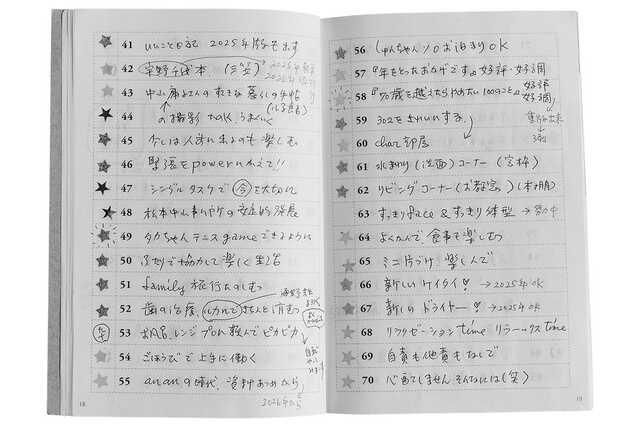 41 いいこと日記 2025年版も出す
42 宇野千代本 (三笠) 2025年
43 中山庸子さんのすてきな暮らしの手帖
44 の撮影 大切 うまくいく
45 今しは人前に出るのも楽しむ
46 緊張をpowerにかえて!!
47 シングルタスクで 今を大切に
48 松本中山事ムヤケの安定的発展
49 タカちゃんテニスgameできるように
50 ふたりで協力して楽しく生活
51 family 旅行たのしむ
52 歯の治療 ルカルできちんと済む
53 お風呂、レンジプロに頼んでピカピカ
54 ごほうびで上手に働く
55 ananの時代、資料あつめから
2026年
18
56 (ゆんちゃん)のお泊まりOK
57 『年をとったおかげです。』好評・好調
58 『70歳を越えたらやめたい100のこと』好評 好調
59 302をきれいにする。
60 char部屋
61 水まわり(洗面)コーナー(窓枠)
62 リビングコーナー(お教室。)(本棚)
63 すっきりface&すっきり体型 →努力中
64 よくかんで 食事も楽しむ
65 ミニ片づけ 楽しんで
66 新しいケイタイ! →2025年OK
67 新しい ドライヤー! →2025年OK
68 リラクゼーションtime リラックスtime
69 自責も他責もなしで
70 心配しません そんなには(笑)
19